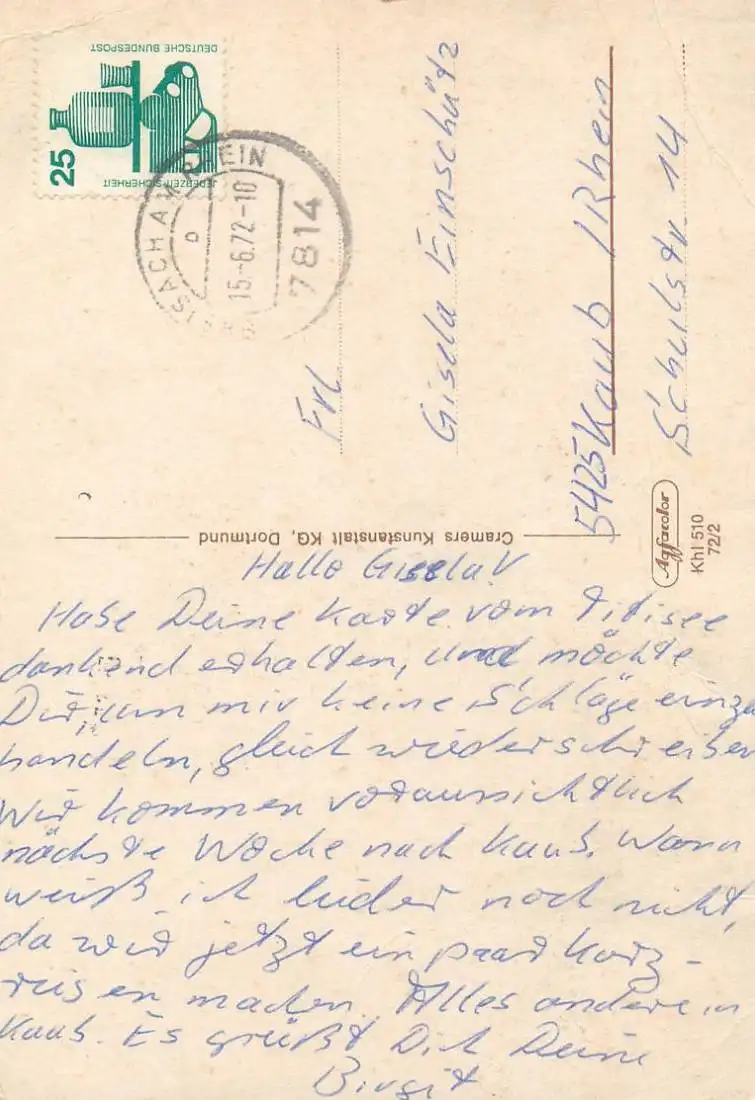 DEUTSCHE BUNDESPOST
25
JEDERZEIT SICHERHEIT
ISACH AM RHEIN
15.-6.72-10
7814
Frl.
Gisela Einschütz
5425 Kaub / Rhein
Schulstr. 14
Cramers Kunstanstalt KG, Dortmund
Agfacolor
Khl 510
72/2
Hallo Gisela!
Habe Deine Karte vom Titisee
dankend erhalten, und möchte
Dir, um mir keine Schläge einzu
handeln, gleich wiederschreiben
Wir kommen voraussichtlich
nächste Woche nach Kaub. Wann
weiß ich leider noch nicht,
da wir jetzt ein paar Kurz-
reisen machen. Alles andere in
Kaub. Es grüßt Dich Deine
Birgit